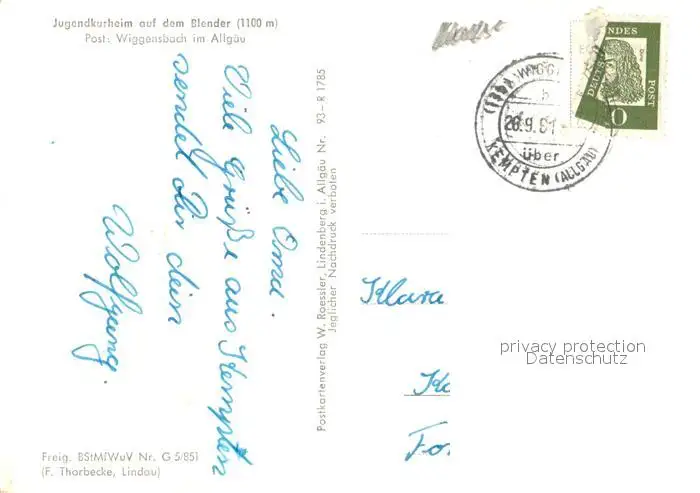 Jugendkurheim auf dem Blender (1100 m)
Post: Wiggensbach im Allgäu
Liebe Oma.
Viele Grüße aus Kempten
sendet dir dein
Wolfgang.
Freig. BStMfWuV Nr. G 5/851
(F. Thorbecke, Lindau)
Postkartenverlag W. Roessler, Lindenberg i. Allgäu Nr. 93-R 1785
Jeglicher Nachdruck verboten
über
KEMPTEN (ALLGÄU)
POST
Klara
privacy protection
Datenschutz